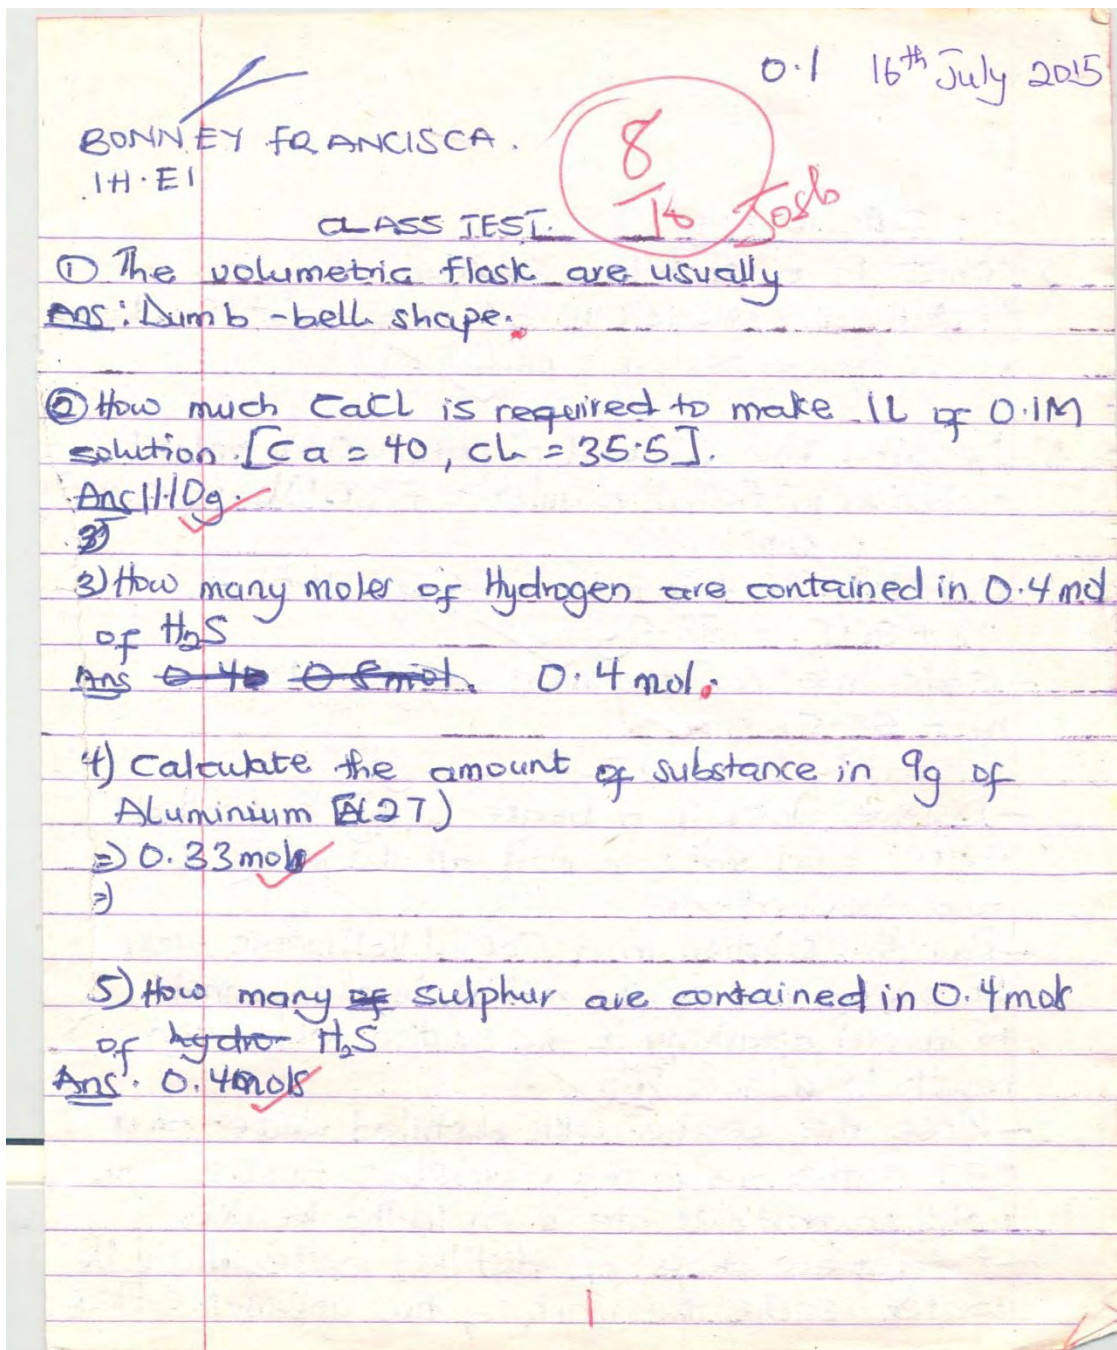 0.1 16th July 2015
BONNEY FRANCISCA.
1H.E1
8
18
CLASS TEST.
① The volumetric flask are usually
Ans: Dumb-bell shape.
② How much CaCl is required to make 1L of 0.1M
solution. [Ca = 40, cl = 35.5].
Ans 11.10g.
3)
3) How many moles of Hydrogen are contained in 0.4 mol
of H₂S
Ans 0.4 mol.
4) Calculate the amount of substance in 9g of
Aluminium [Al 27)
=) 0.33 mols
=)
5) How many of sulphur are contained in 0.4 mols
of hydro- H₂S
Ans. 0.4 mols
1